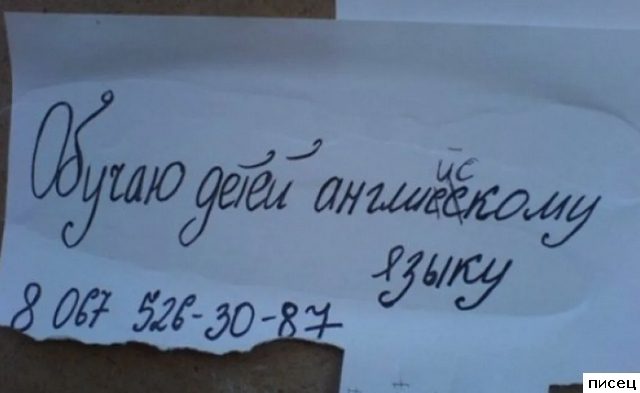 Обучаю детей английскому
языку
8 067 526-30-87
писец